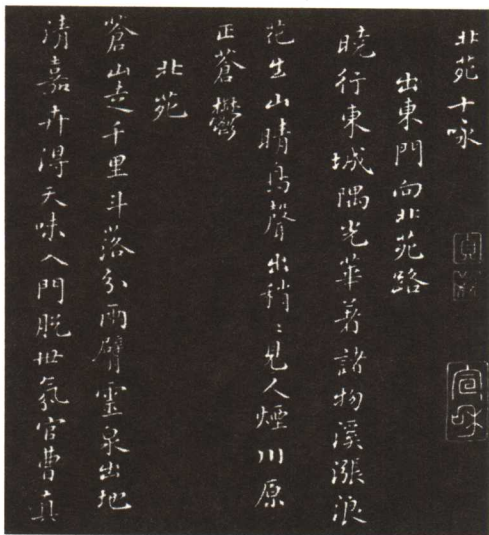 北苑十咏
出東門向北苑路
曉行東城隅光華著諸物溪漲浪
花生山晴鳥聲出稍〻見人煙川原
正蒼鬱
北苑
蒼山走千里斗落分兩臂靈泉出地
清嘉卉得天味入門脱世氛官曹真
宣和